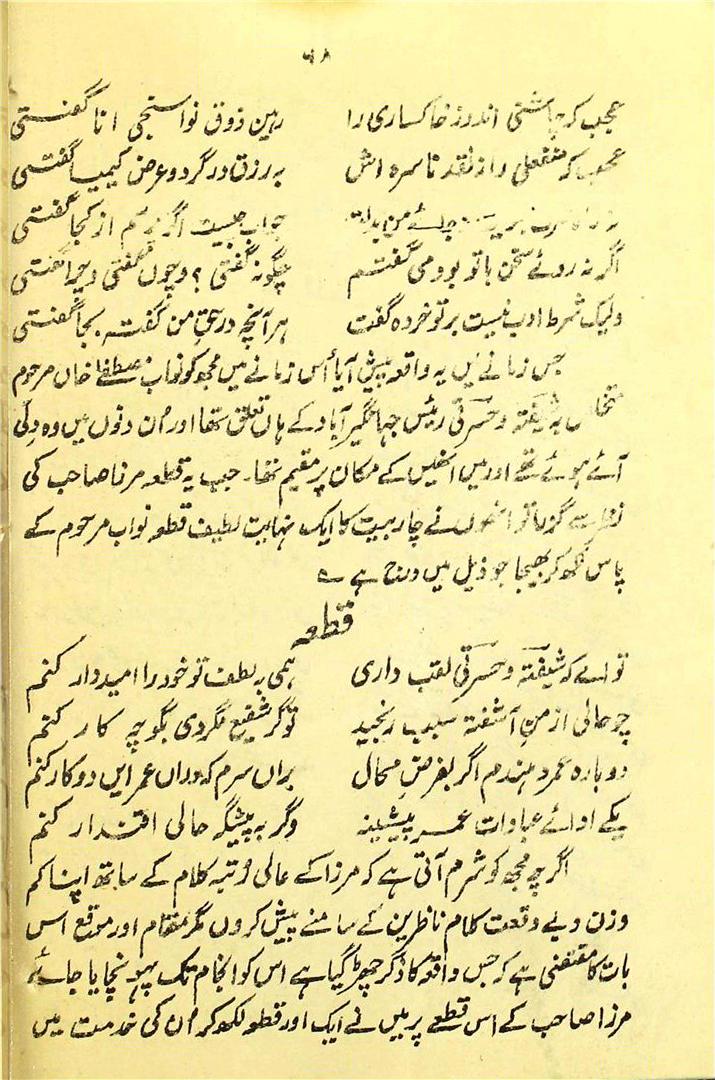 ۶۸
عجب کہ چاشنی اندوز خاکساری را رہین ذوق نواسنجی انا گفتی
عجب کہ منفعلی را ز نقد ناسرہ اش بہ رزق در گرد و عرض کیمیا گفتی
جواب چیست اگر پرسم از کجا گفتی
اگر نہ روئے سخن با تو بودمی گفتم چگونہ گفتی؟ و چوں گفتی و چرا گفتی
ولیک شرط ادب نیست بر تو خردہ گفت ہر آنچہ در حق من گفتہ بجا گفتی
جس زمانے میں یہ واقعہ پیش آیا اُس زمانے میں مجھ کو نواب مصطفےٰ خاں مرحوم
متخلص بہ شیفتہ و حسرتی رئیس جہانگیرآباد کے ہاں تعلق تھا اور اُن دنوں میں وہ دِلّی
آئے ہوئے تھے اور میں انھیں کے مکان پر مقیم تھا۔ جب یہ قطعہ مرزا صاحب کی
نظر سے گزرا تو انھوں نے چار بیت کا ایک نہایت لطیف قطعہ نواب مرحوم کے
پاس لکھ کر بھیجا جو ذیل میں درج ہے ؎
قطعہ
تو اے کہ شیفتہ و حسرتی لقب داری ہمی بہ لطف تو خود را امیدوار کنم
چو حالی از من آشفتہ بے سبب رنجید تو گر شفیع نگردی بگو چہ کار کنم
دوبارہ عمر دہندم اگر بفرضِ محال براں سرم کہ دراں عمر ایں دو کار کنم
یکے ادائے عبادات عمر پیشینہ دگر بہ پیشگہِ حالی اعتذار کنم
اگرچہ مجھ کو شرم آتی ہے کہ مرزا کے عالی رُتبہ کلام کے ساتھ اپنا کم
وزن و بے وقعت کلام ناظرین کے سامنے پیش کروں مگر مقام اور موقع اس
بات کا مقتضی ہے کہ جس واقعہ کا ذکر چھڑ گیا ہے اس کو انجام تک پہونچایا جائے
مرزا صاحب کے اس قطعے پر میں نے ایک اور قطعہ لکھ کر اُن کی خدمت میں